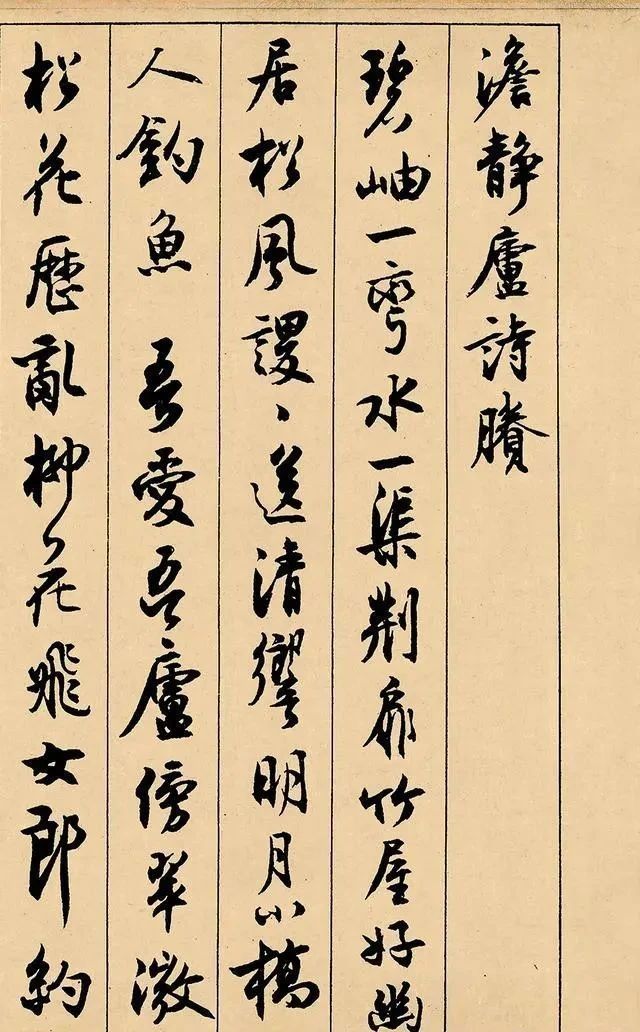 澹静廬詩賸
碧岫一彎水一渠荆扉竹屋好幽
居松風謖〻送清響明月小橋
人釣魚 吾愛吾廬傍翠微
松花歷亂柳花飛女郎約